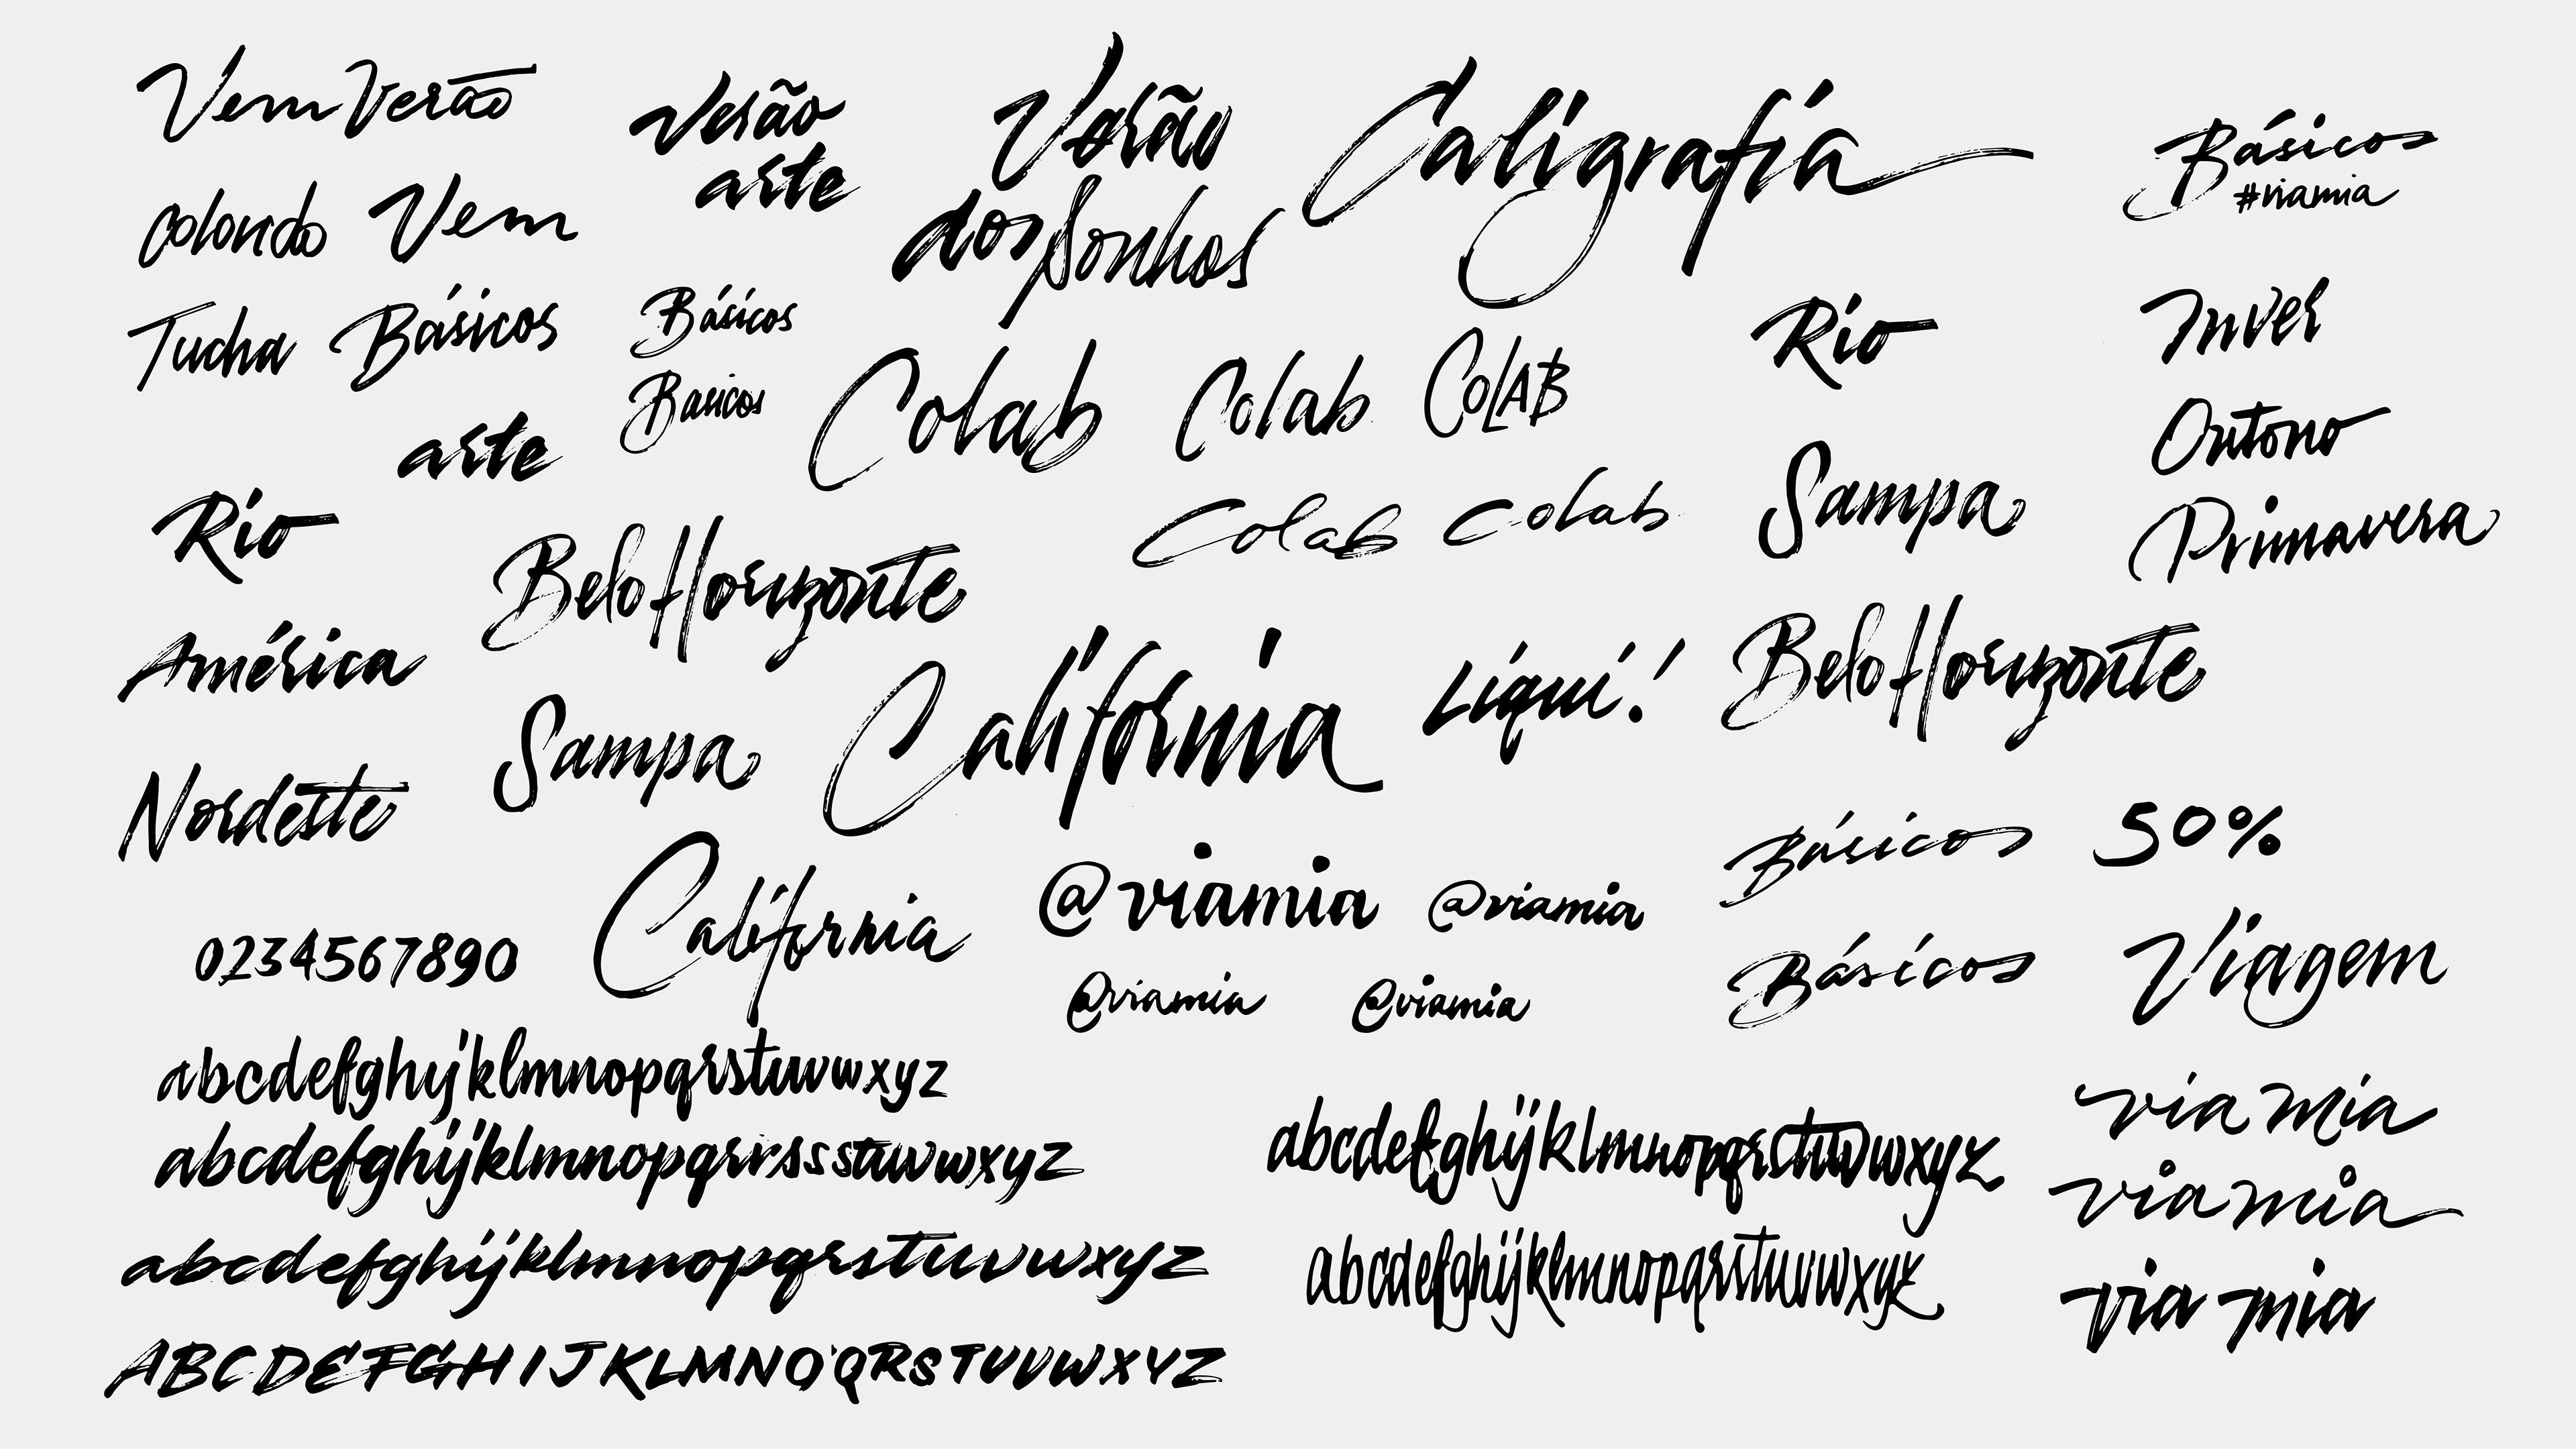 Vem Verão
Verão
arte
Verão
dos Sonhos
Caligrafia
Básicos
#viamia
Vem
Tucha
Básicos
Básicos
Basicos
arte
Colab
Colab
CoLAB
Colab
Colab
Rio
Inver
Outono
Primavera
Sampa
Rio
Belo Horizonte
América
Sampa
California
Liquí!
Belo Horizonte
Nordeste
California
@viamia
@viamia
@viamia
@viamia
Básicos
50%
Básicos
Viagem
0234567890
abcdefghijklmnopqrstuvwxyz
abcdefghijklmnopqrrsssstuvwxyz
abcdefghijklmnopqrstuvwxyz
ABCDEFGHIJKLMNO'QRSTUVWXYZ
abcdefghijklmnopqrstuvwxyz
abcdefghijklmnopqrstuvwxyz
via mia
via mia
via mia